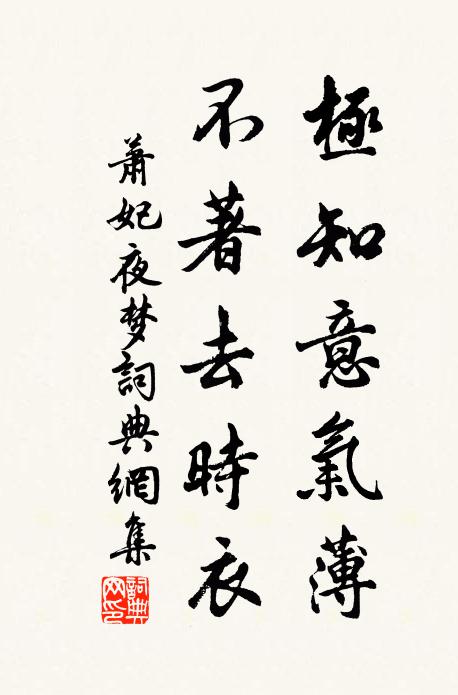 極知意氣薄
不著去時衣
蕭妃夜梦詞典網集
詞典网印